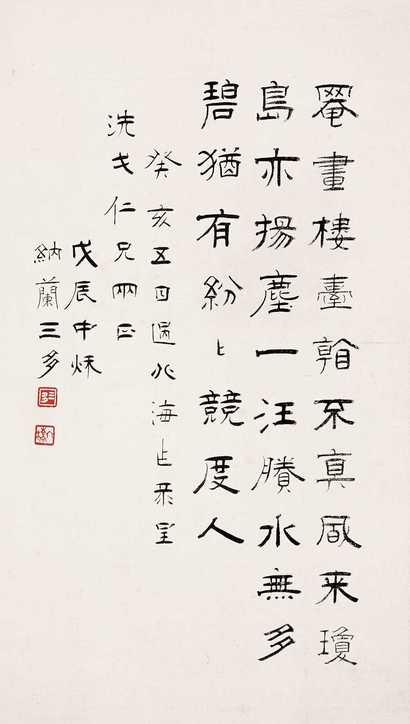 罨畫樓臺看不真風来瓊
島亦揚塵一汪賸水無多
碧猶有紛〻競度人
癸亥五日過北海乍录呈
洗戈仁兄兩正
戊辰中秌
納蘭三多